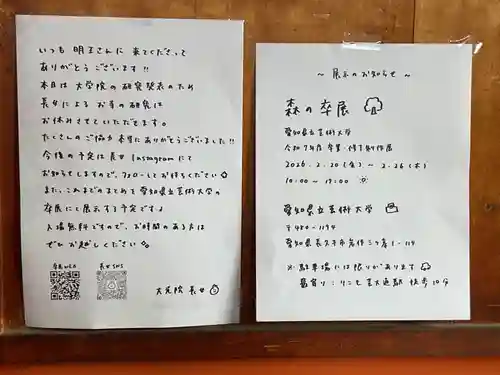 いつも 明王さんに 来てくださって
ありがとうございます!!
本日は 大学院の 研究発表のため
長女による お寺の研究は
お休みさせていただきます。
たくさんのご協力 本当にありがとうございました!!
今後の予定は 長女 Instagramにて
お知らせしますので、フォローしてお待ちください
また、これまでのまとめを 愛知県立芸術大学の
卒展にて展示する予定です♪
入場無料ですので、お時間のある方は
ぜひ お越しください
長女 SNS
大光院 長女
～ 展示のお知らせ ～
森の卒展
愛知県立芸術大学
令和7年度 卒業・修了制作展
2026. 2. 20 (金) ～ 2. 26 (木)
10:00 ～ 17:00
愛知県立芸術大学
〒480-1194
愛知県長久手市岩作三ケ峯1-114
※ 駐車場には限りがあります
最寄り:リニモ 芸大通駅 徒歩10分